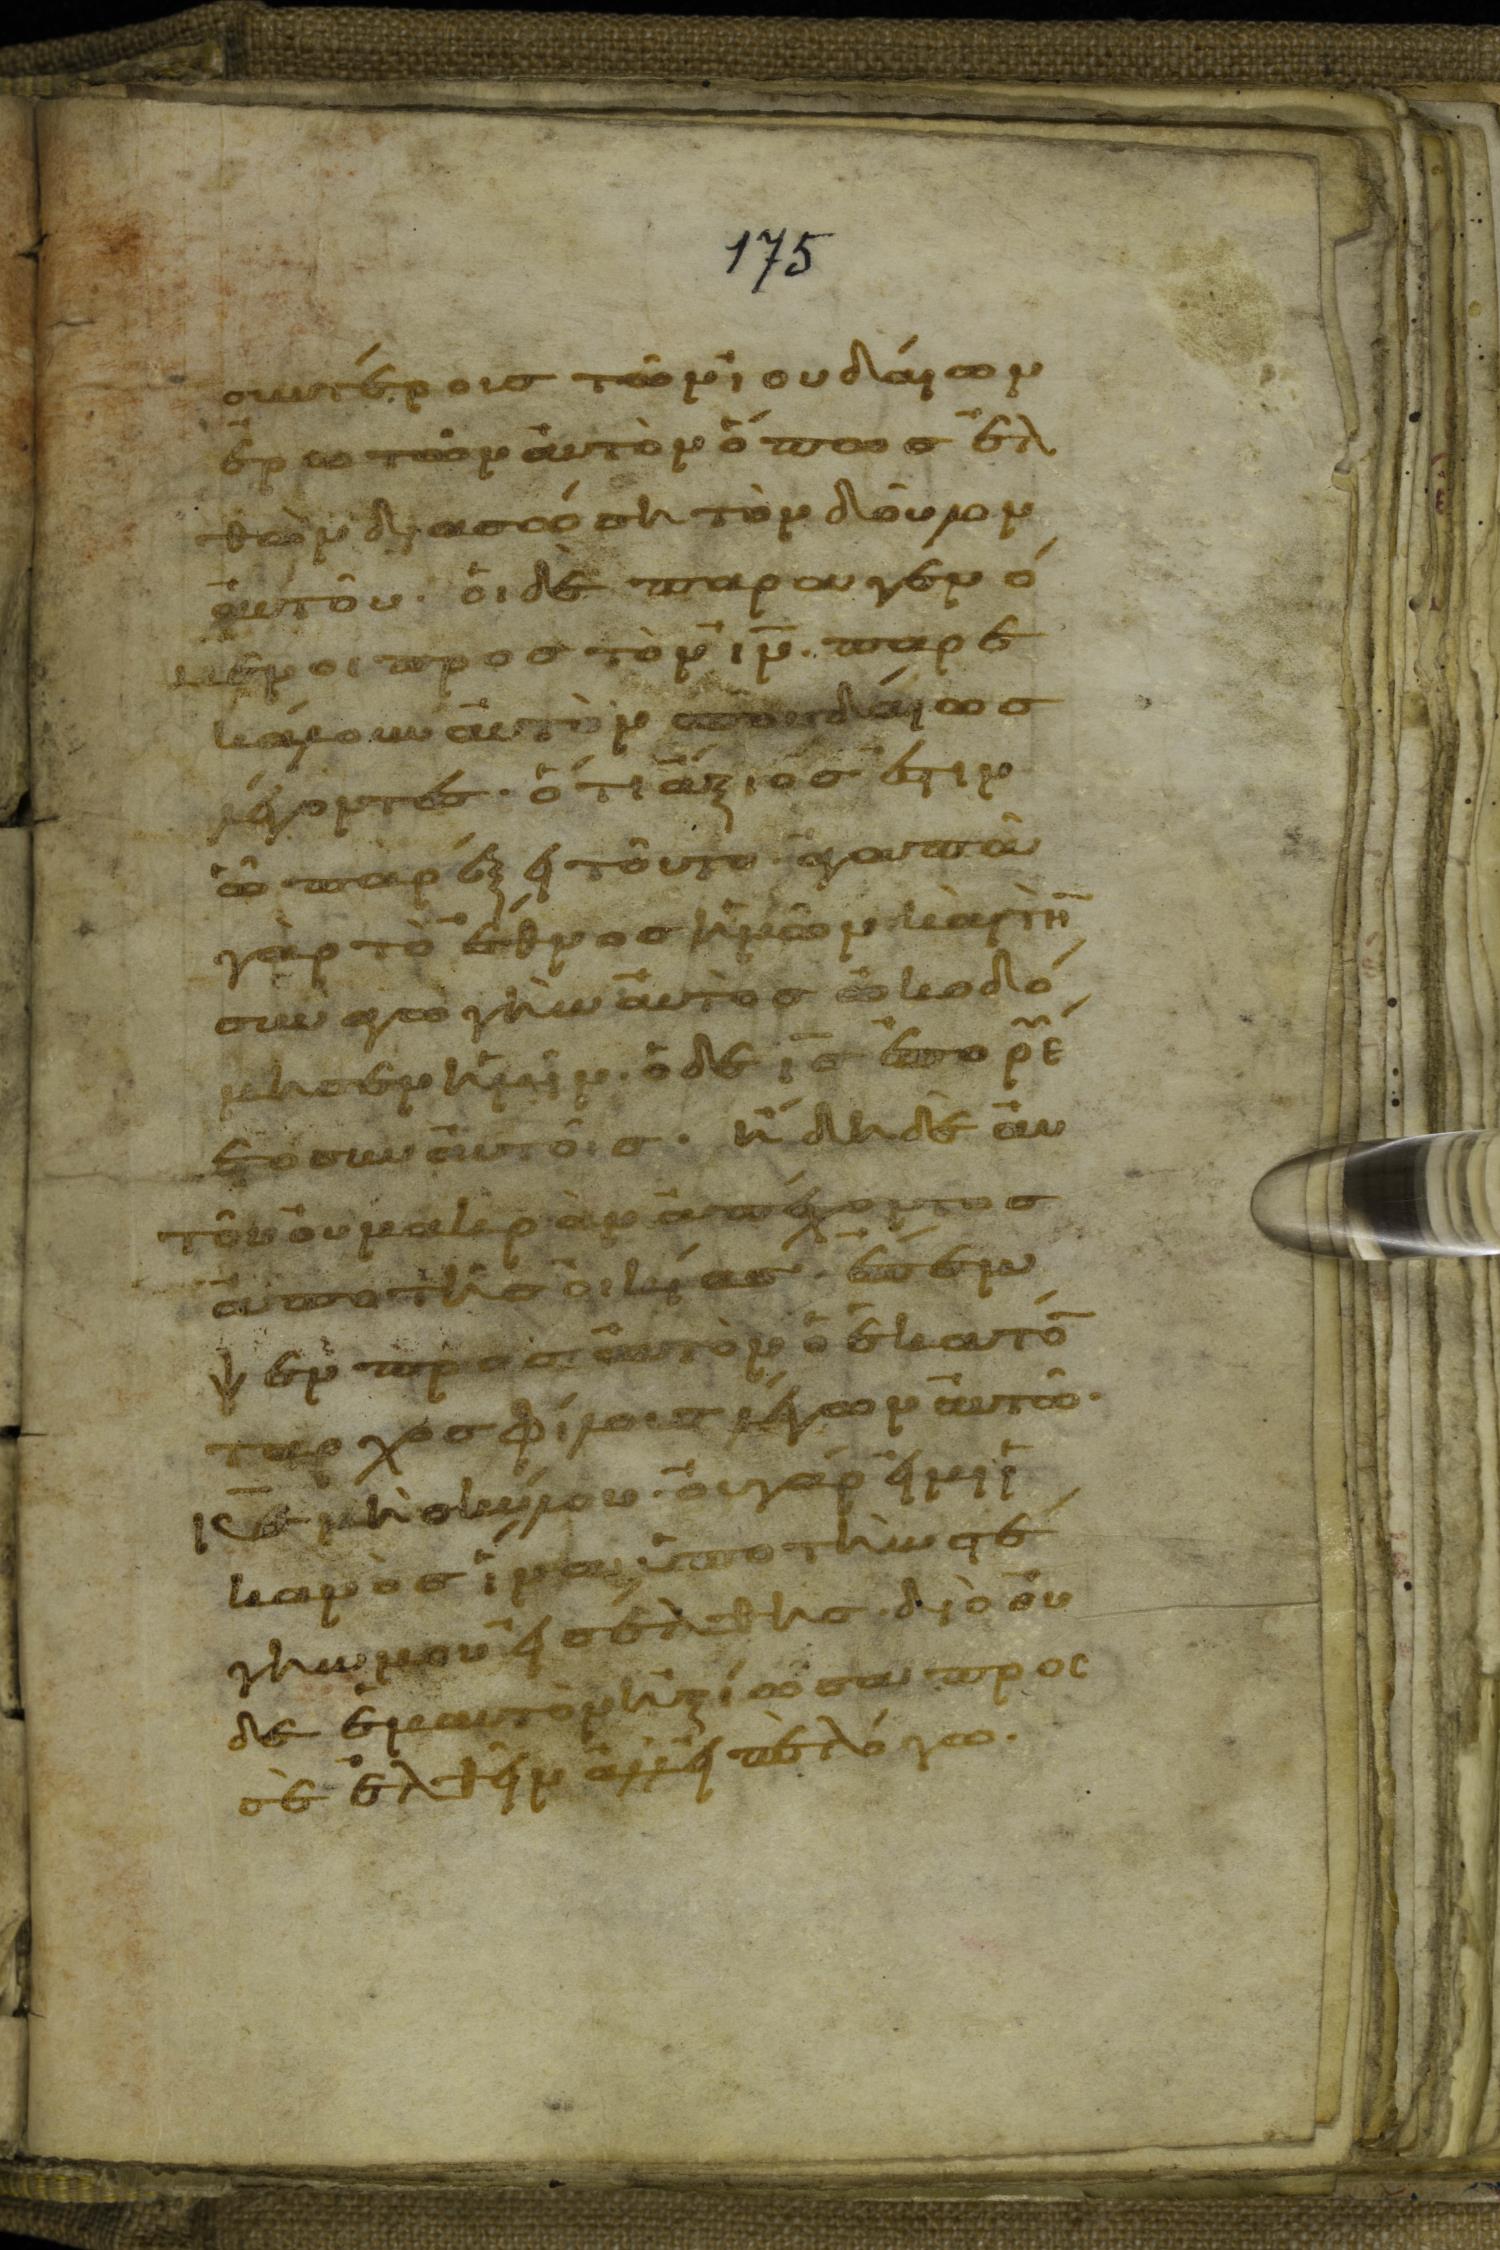 175
συτέροις τῶν ἰουδάιων
ἐρωτῶν ἀυτὸν ὅπως ἐλ
θὼν διασώση τὸν δοῦλον
ἀυτοῦ. ὁι δὲ παραγενό
μενοι προσ τὸν ἰν̅. παρε
κάλουν ἀυτὸν σπουδάιωσ
λέγοντες. ὅτι ἄξιόσ ἐστιν
ὧ παρέξει τοῦτο. ἀγαπᾶ
γὰρ τὸ ἔθνοσ ἡμῶν καὶ τὴ̅
συναγωγὴν ἀυτὸσ ὠκοδό
μησεν ἡμῖν. ὁ δὲ ι̅σ̅ ἐπορἐ
ετο συν ἀυτοῖσ. ἤδη δὲ ἀυ
τοῦ οὐ μακρὰν ἀπέχοντοσ
ἀπο τῆσ οἰκίασ. ἔπεμ
ψεν προσ ἀυτὸν ὁ ἑκατό̅
ταρχοσ φίλουσ λέγων ἀυτῶ.
κ̅ε̅ μὴ σκύλου. ὀυ γάρ ἐιμι ἱ
κανὸσ ἵνα ὑπο τὴν στέ
γην μου ἐισέλθησ. διὸ ὀυ
δὲ ἐμαυτὸν ἠξίωσα προς
σὲ ἐλθεῖν ἀλλ' εἰπὲ λόγω.